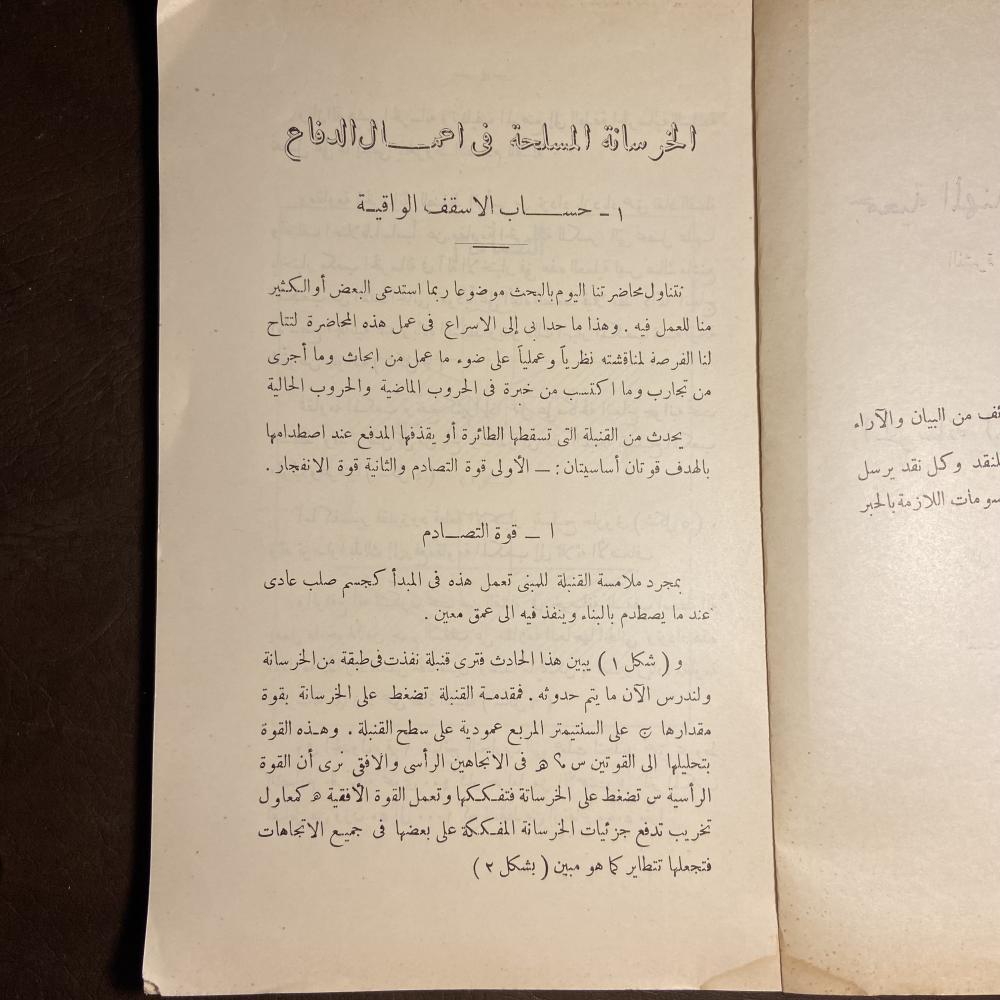 الخرسانة المسلحة فى اعمـــال الدفاع
١ - حســـاب الاسقف الواقيـة
نتناول محاضرتنا اليوم بالبحث موضوعا ربما استدعى البعض أو الكثير
منا للعمل فيه . وهذا ما حدا بى إلى الاسراع فى عمل هذه المحاضرة لتتاح
لنا الفرصة لمناقشته نظرياً وعملياً على ضوء ما عمل من ابحاث وما أجرى
من تجارب وما اكتسب من خبرة فى الحروب الماضية والحروب الحالية
يحدث من القنبلة التى تسقطها الطائرة أو يقذفها المدفع عند اصطدامها
بالهدف قوتان أساسيتان : — الأولى قوة التصادم والثانية قوة الانفجار .
ا — قوة التصــادم
بمجرد ملامسة القنبلة للمبنى تعمل هذه فى المبدأ كجسم صلب عادى
عند ما يصطدم بالبناء وينفذ فيه الى عمق معين .
و ( شكل ١ ) يبين هذا الحادث فترى قنبلة نفذت فى طبقة من الخرسانة
ولندرس الآن ما يتم حدوثه . فمقدمة القنبلة تضغط على الخرسانة بقوة
مقدارها ح على السنتيمتر المربع عمودية على سطح القنبلة . وهـذه القوة
بتحليلها الى القوتين س ، ه فى الاتجاهين الرأسى والافقى نرى أن القوة
الرأسية س تضغط على الخرسانة فتفككها وتعمل القوة الأفقية ه كمعاول
تخريب تدفع جزئيات الخرسانة المفككة على بعضها فى جميع الاتجاهات
فتجعلها تتطاير كما هو مبين ( بشكل ٢ )
من البيان والآراء
للنقد وكل نقد يرسل
اللازمة بالحبر